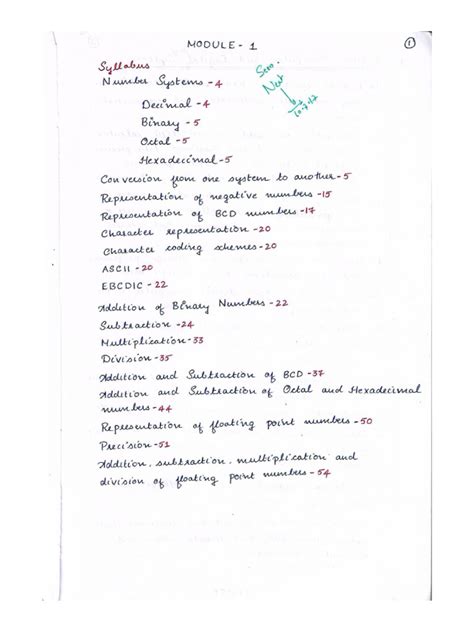 MODULE - 1
1
Syllabus
Number Systems - 4
Decimal - 4
Binary - 5
Octal - 5
Hexadecimal - 5
Conversion from one system to another - 5
Representation of negative numbers - 15
Representation of BCD numbers - 17
Character representation - 20
Character coding schemes - 20
ASCII - 20
EBCDIC - 22
Addition of Binary Numbers - 22
Subtraction - 24
Multiplication - 33
Division - 35
Addition and Subtraction of BCD - 37
Addition and Subtraction of Octal and Hexadecimal
numbers - 44
Representation of floating point numbers - 50
Precision - 51
Addition, subtraction, multiplication and
division of floating point numbers - 54